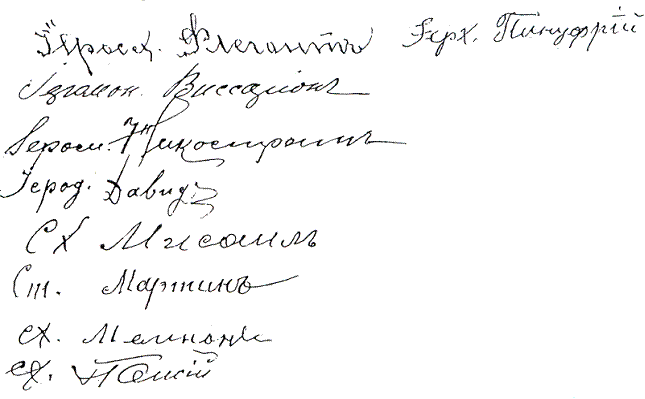 Іеросх. Флегонтъ Іерх. Пинуфрій
Іеромон. Виссаріонъ
Іером. Никостратъ
Іерод. Давидъ
Сх Мисаилъ
Сх. Мартинъ
сх. Мемнонъ
сх. Паисій